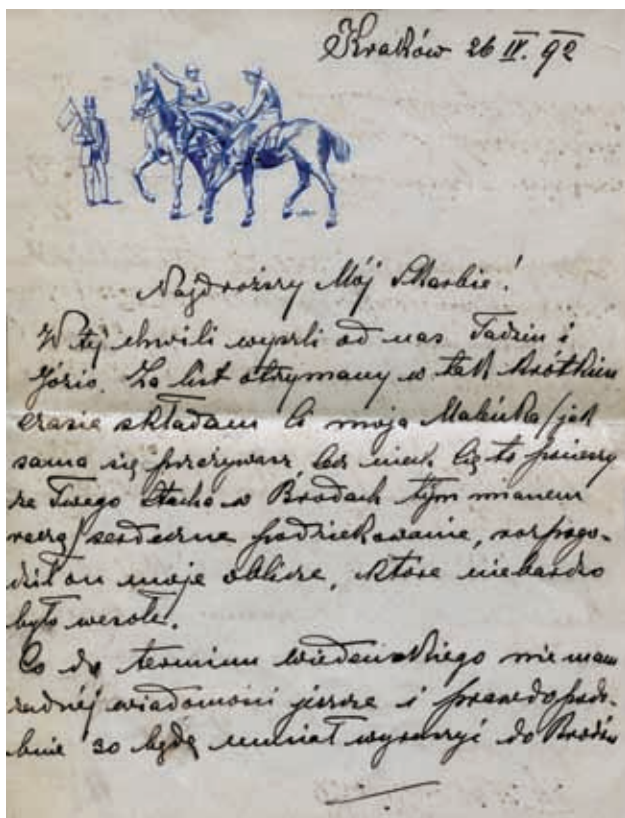 Kraków 26 IV. 92
Najdroższy Mój Skarbie!
W tej chwili wyszli od nas Tadzin i
Józio. Za list otrzymany w tak krótkim
czasie składam Ci moja Maleńka /jak
sama się przezywasz, lecz niech Cię to pocieszy
że Twego Stacha w Brodach tym mianem
raczą/ serdeczne podziękowanie, rozpogo-
dził on moje oblicze, które niebardzo
było wesołe.
Co do terminu wiedeńskiego nie mam
żadnéj wiadomości jeszcze i prawdopodo-
bnie 30 będę musiał wyruszyć do Brodów